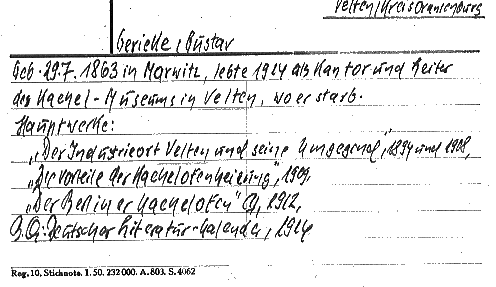 Velten, Kreis Oranienburg
Gericke, Gustav
Geb. 29.7.1863 in Marwitz, lebte 1924 als Kantor und Leiter
des Kachel-Museums in Velten, wo er starb.
Hauptwerke:
„Der Industrieort Velten und seine Umgegend", 1894 und 1908,
„Die Vorteile der Kachelofenheizung", 1909,
„Der Berliner Kachelofen", 1912,
Deutscher Literatur-Kalender, 1924
Reg. 10, Stichnote. 1. 50. 232 000. A. 803. S. 4062